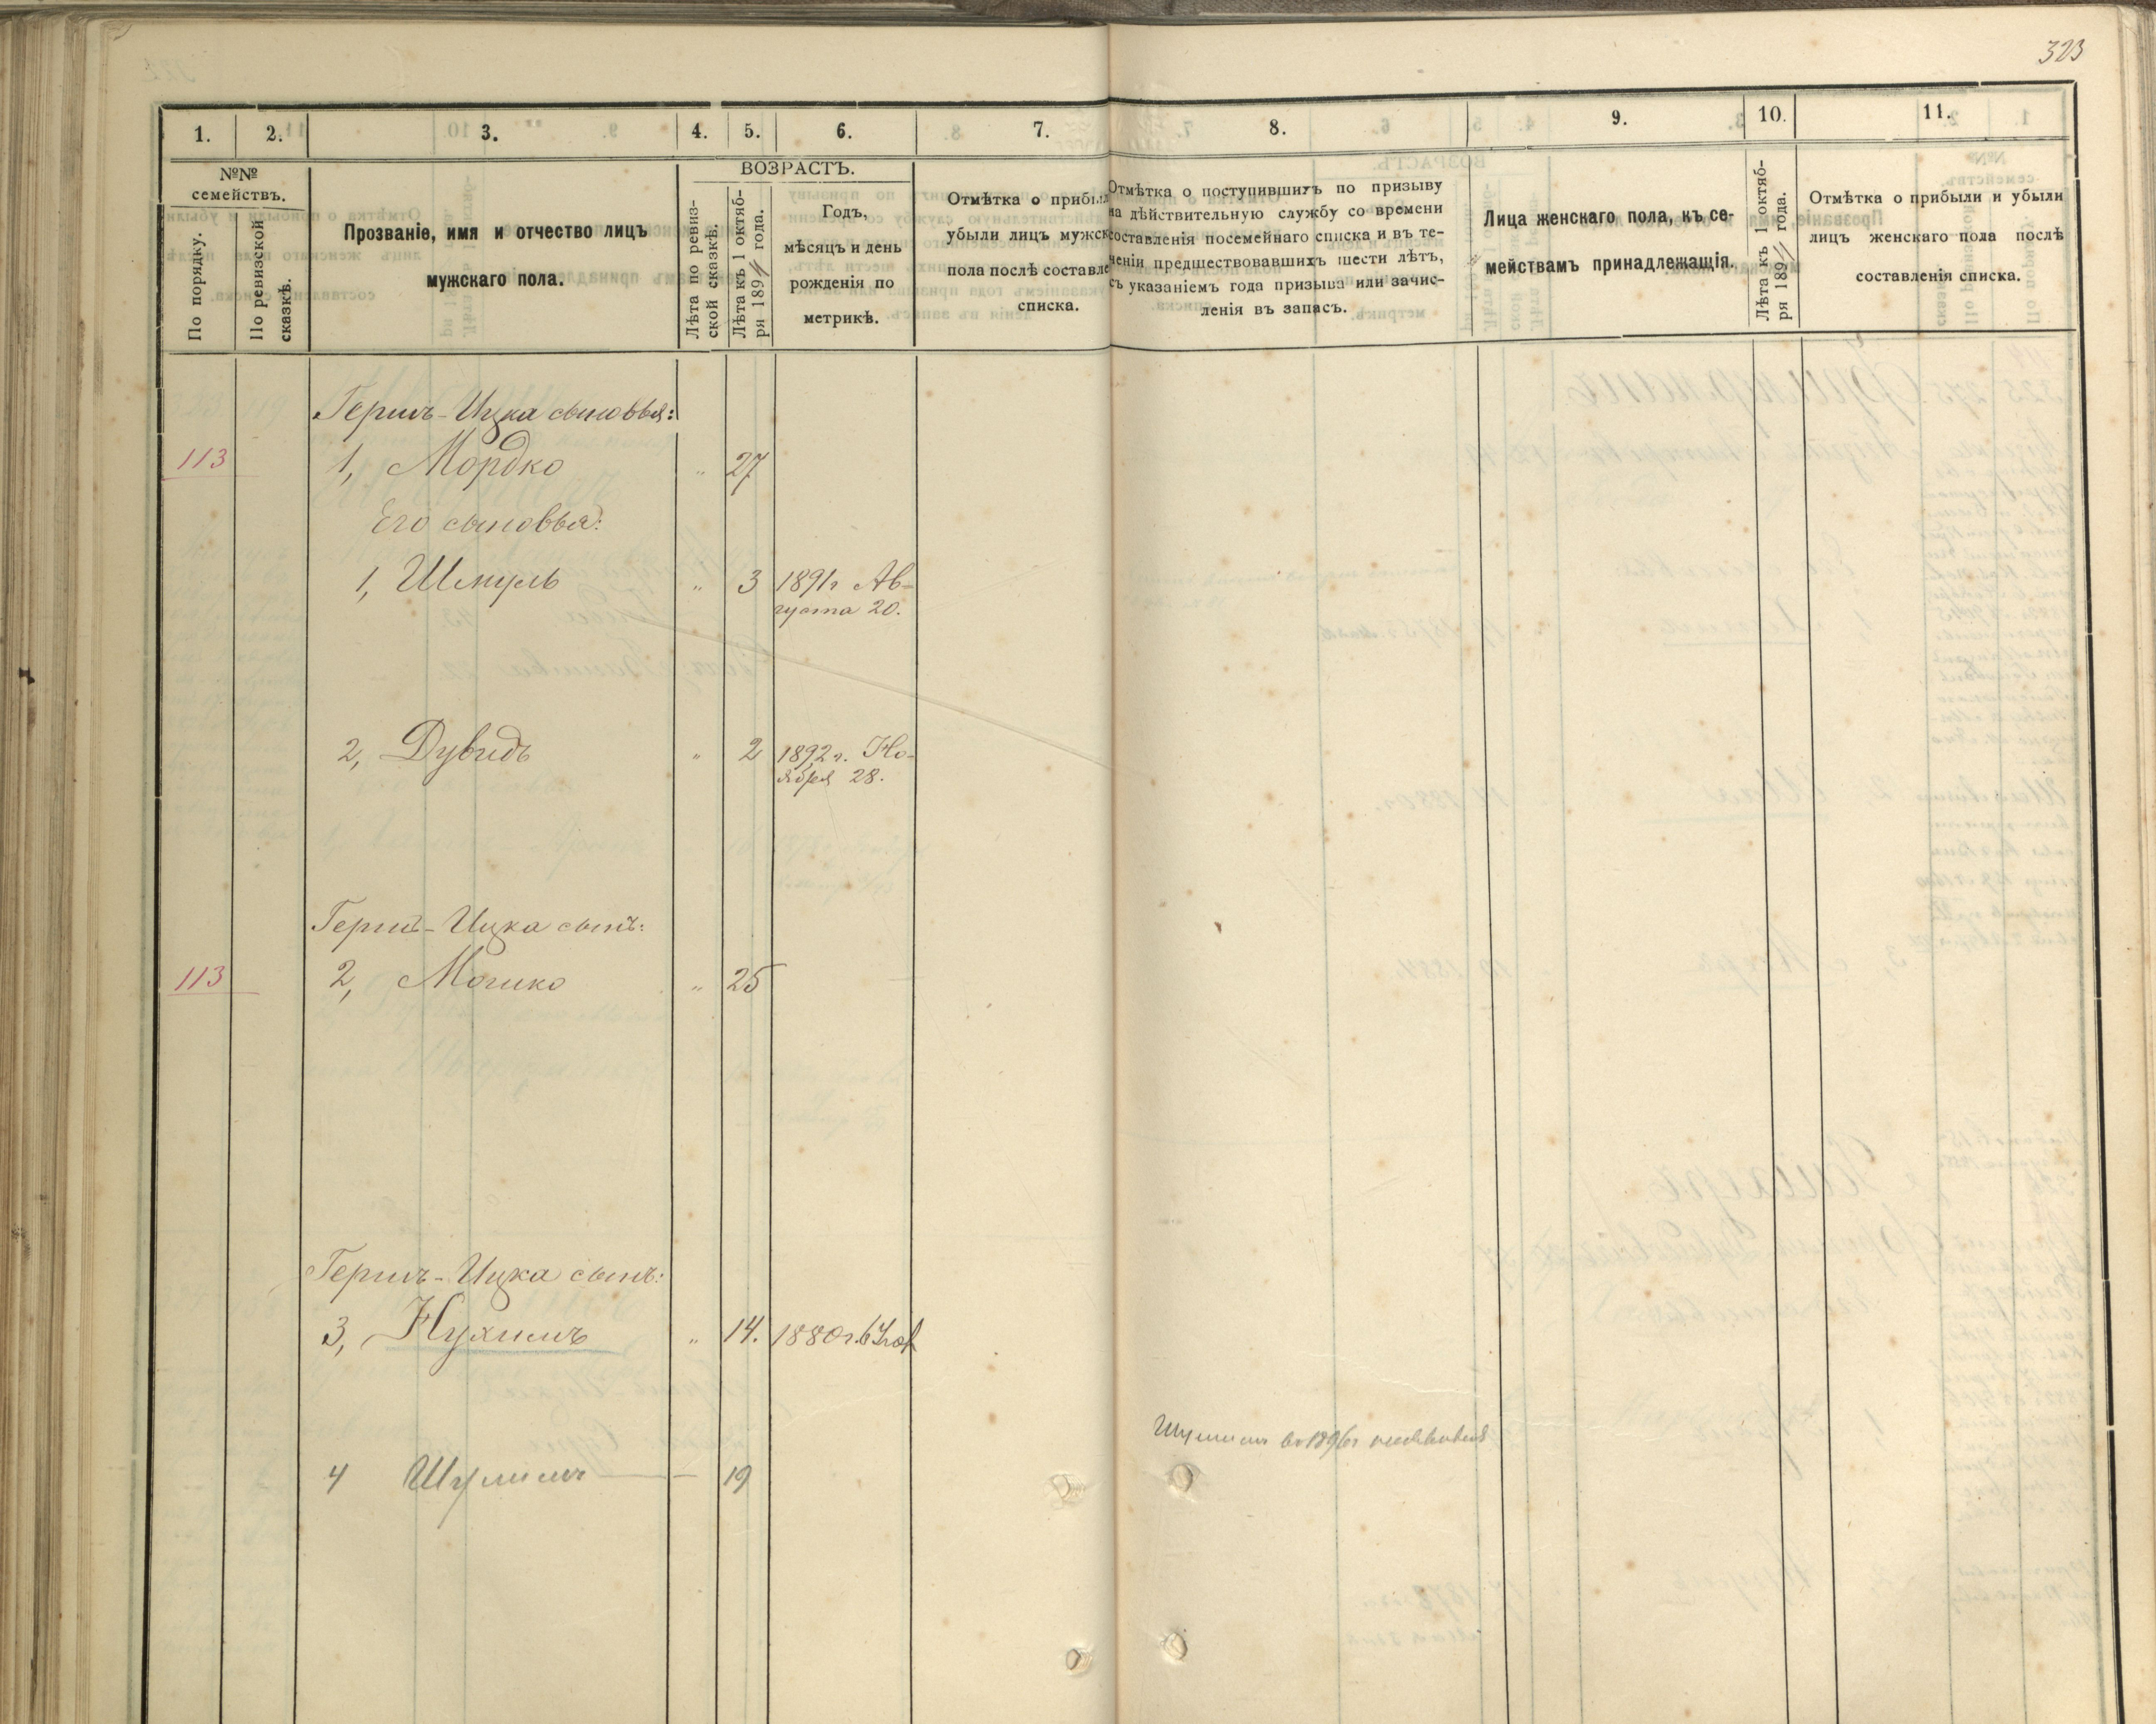 323
1. 2. 3. 4. 5. 6. 7. 8. 9. 10. 11.
№№ семействъ.
По порядку.
По ревизской сказкѣ.
Прозваніе, имя и отчество лицъ
мужскаго пола.
ВОЗРАСТЪ.
Лѣта по ревиз-
ской сказкѣ.
Лѣта къ 1 октяб-
ря 1894 года.
Годъ,
мѣсяцъ и день
рожденія по
метрикѣ.
Отмѣтка о прибыл
убыли лицъ мужск
пола послѣ составле
списка.
Отмѣтка о поступившихъ по призыву
на дѣйствительную службу со времени
составленія посемейнаго списка и въ те-
ченіи предшествовавшихъ шести лѣтъ,
съ указаніемъ года призыва или зачис-
ленія въ запасъ.
Лица женскаго пола, къ се-
мействамъ принадлежащія.
Лѣта къ 1 октяб-
ря 1894 года.
Отмѣтка о прибыли и убыли
лицъ женскаго пола послѣ
составленія списка.
Гершъ-Ицка сыновья:
113 1, Мордко " 27
Его сыновья:
1, Шмуль " 3 1891г Ав-
густа 20.
2, Дувидъ " 2 1892г. Но-
ября 28.
Гершъ-Ицка сынъ:
113 2, Мошко " 25
Гершъ-Ицка сынъ:
3, Нухимъ " 14. 1880г. 6
Шулимъ в 1896г
4 Шулимъ — 19